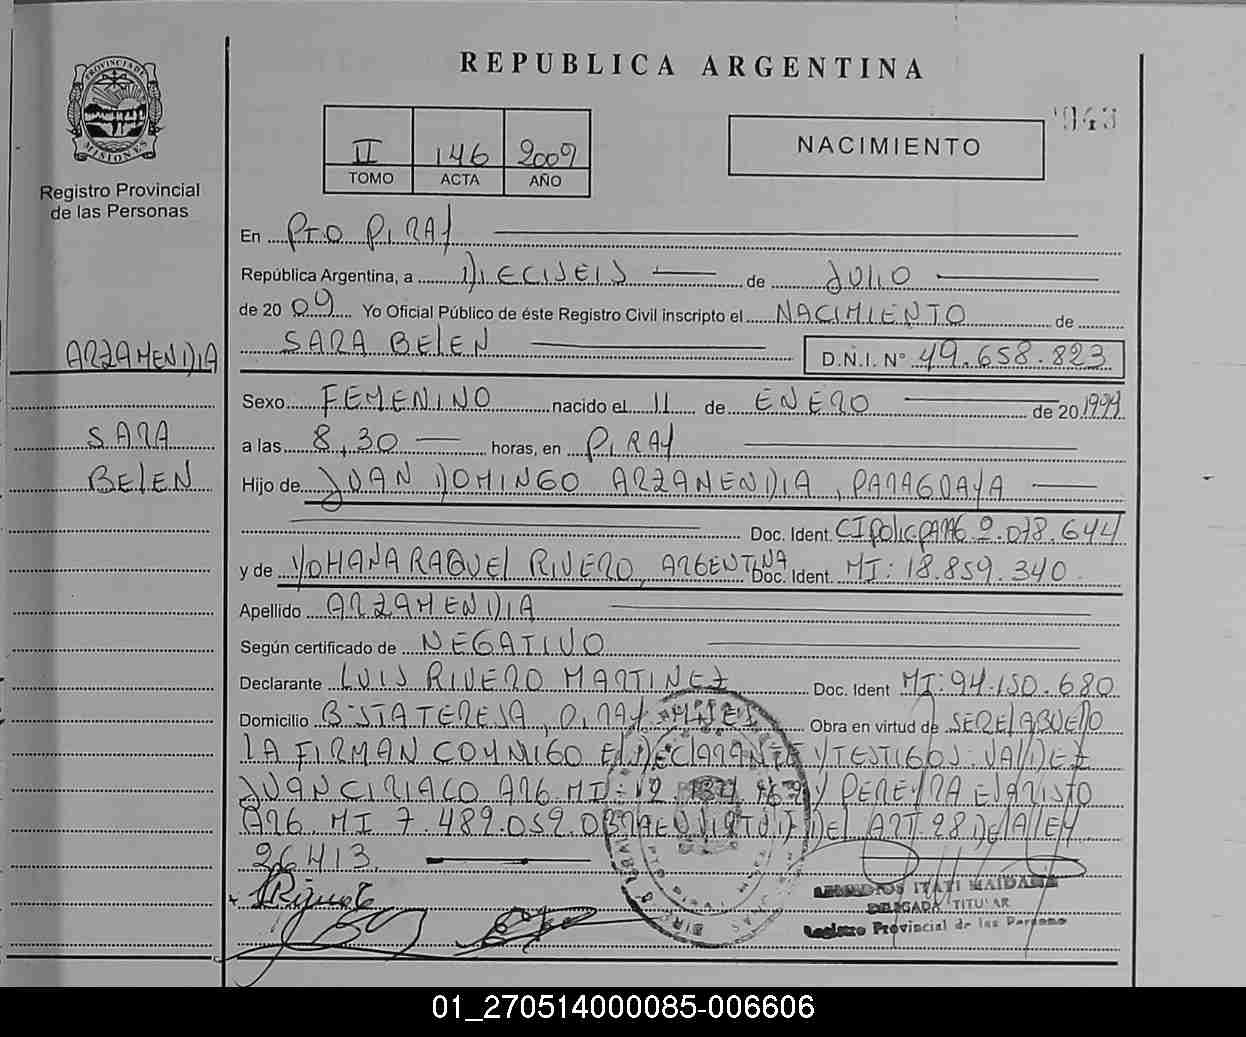 REPUBLICA ARGENTINA
PROVINCIA DE
MISIONES
Registro Provincial
de las Personas
II 146 2009
TOMO ACTA AÑO
NACIMIENTO
En PTO PIRAY
República Argentina, a DIECISEIS de JULIO
de 20 09 Yo Oficial Público de éste Registro Civil inscripto el NACIMIENTO de
SARA BELEN D.N.I. Nº 49.658.823
ARZAMENDIA
SARA
BELEN
Sexo FEMENINO nacido el 11 de ENERO de 20 1999
a las 8,30 horas, en PIRAY
Hijo de JUAN DOMINGO ARZAMENDIA, PARAGUAYA
Doc. Ident. CI POLIC PARAG 2.078.644
y de YOHANA RAQUEL RIVERO, ARGENTINA Doc. Ident. MI: 18.859.340
Apellido ARZAMENDIA
Según certificado de NEGATIVO
Declarante LUIS RIVERO MARTINEZ Doc. Ident MI: 94.150.680
Domicilio Bº STA TERESA, PIRAY MNES Obra en virtud de SER EL ABUELO
LA FIRMAN CONMIGO EL DECLARANTE Y TESTIGOS: VALDEZ
JUAN CIRIACO ARG. MI: Y PEREYRA EVARISTO
ARG. MI 7.489.059. OBRA EN VIRTUD DEL ART. 28 DE LA LEY
26413.
ITATI MAIDANA
DELEGADA TITULAR
Registro Provincial de las Personas
01_270514000085-006606